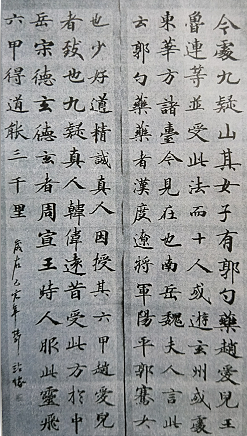 今處九疑山其女子有郭勺藥趙愛兒王
魯連等並受此法而十人或遊玄州或處
東華方諸臺今見在也南岳魏夫人言此
云郭勺藥藥者漢度遼將軍陽平郭騫女
也少好道精誠真人因授其六甲趙愛兒
者
也九疑真人韓偉遠昔受此方於中
岳宗德玄德玄者周宣王時人服此靈飛
六甲得道能三千里